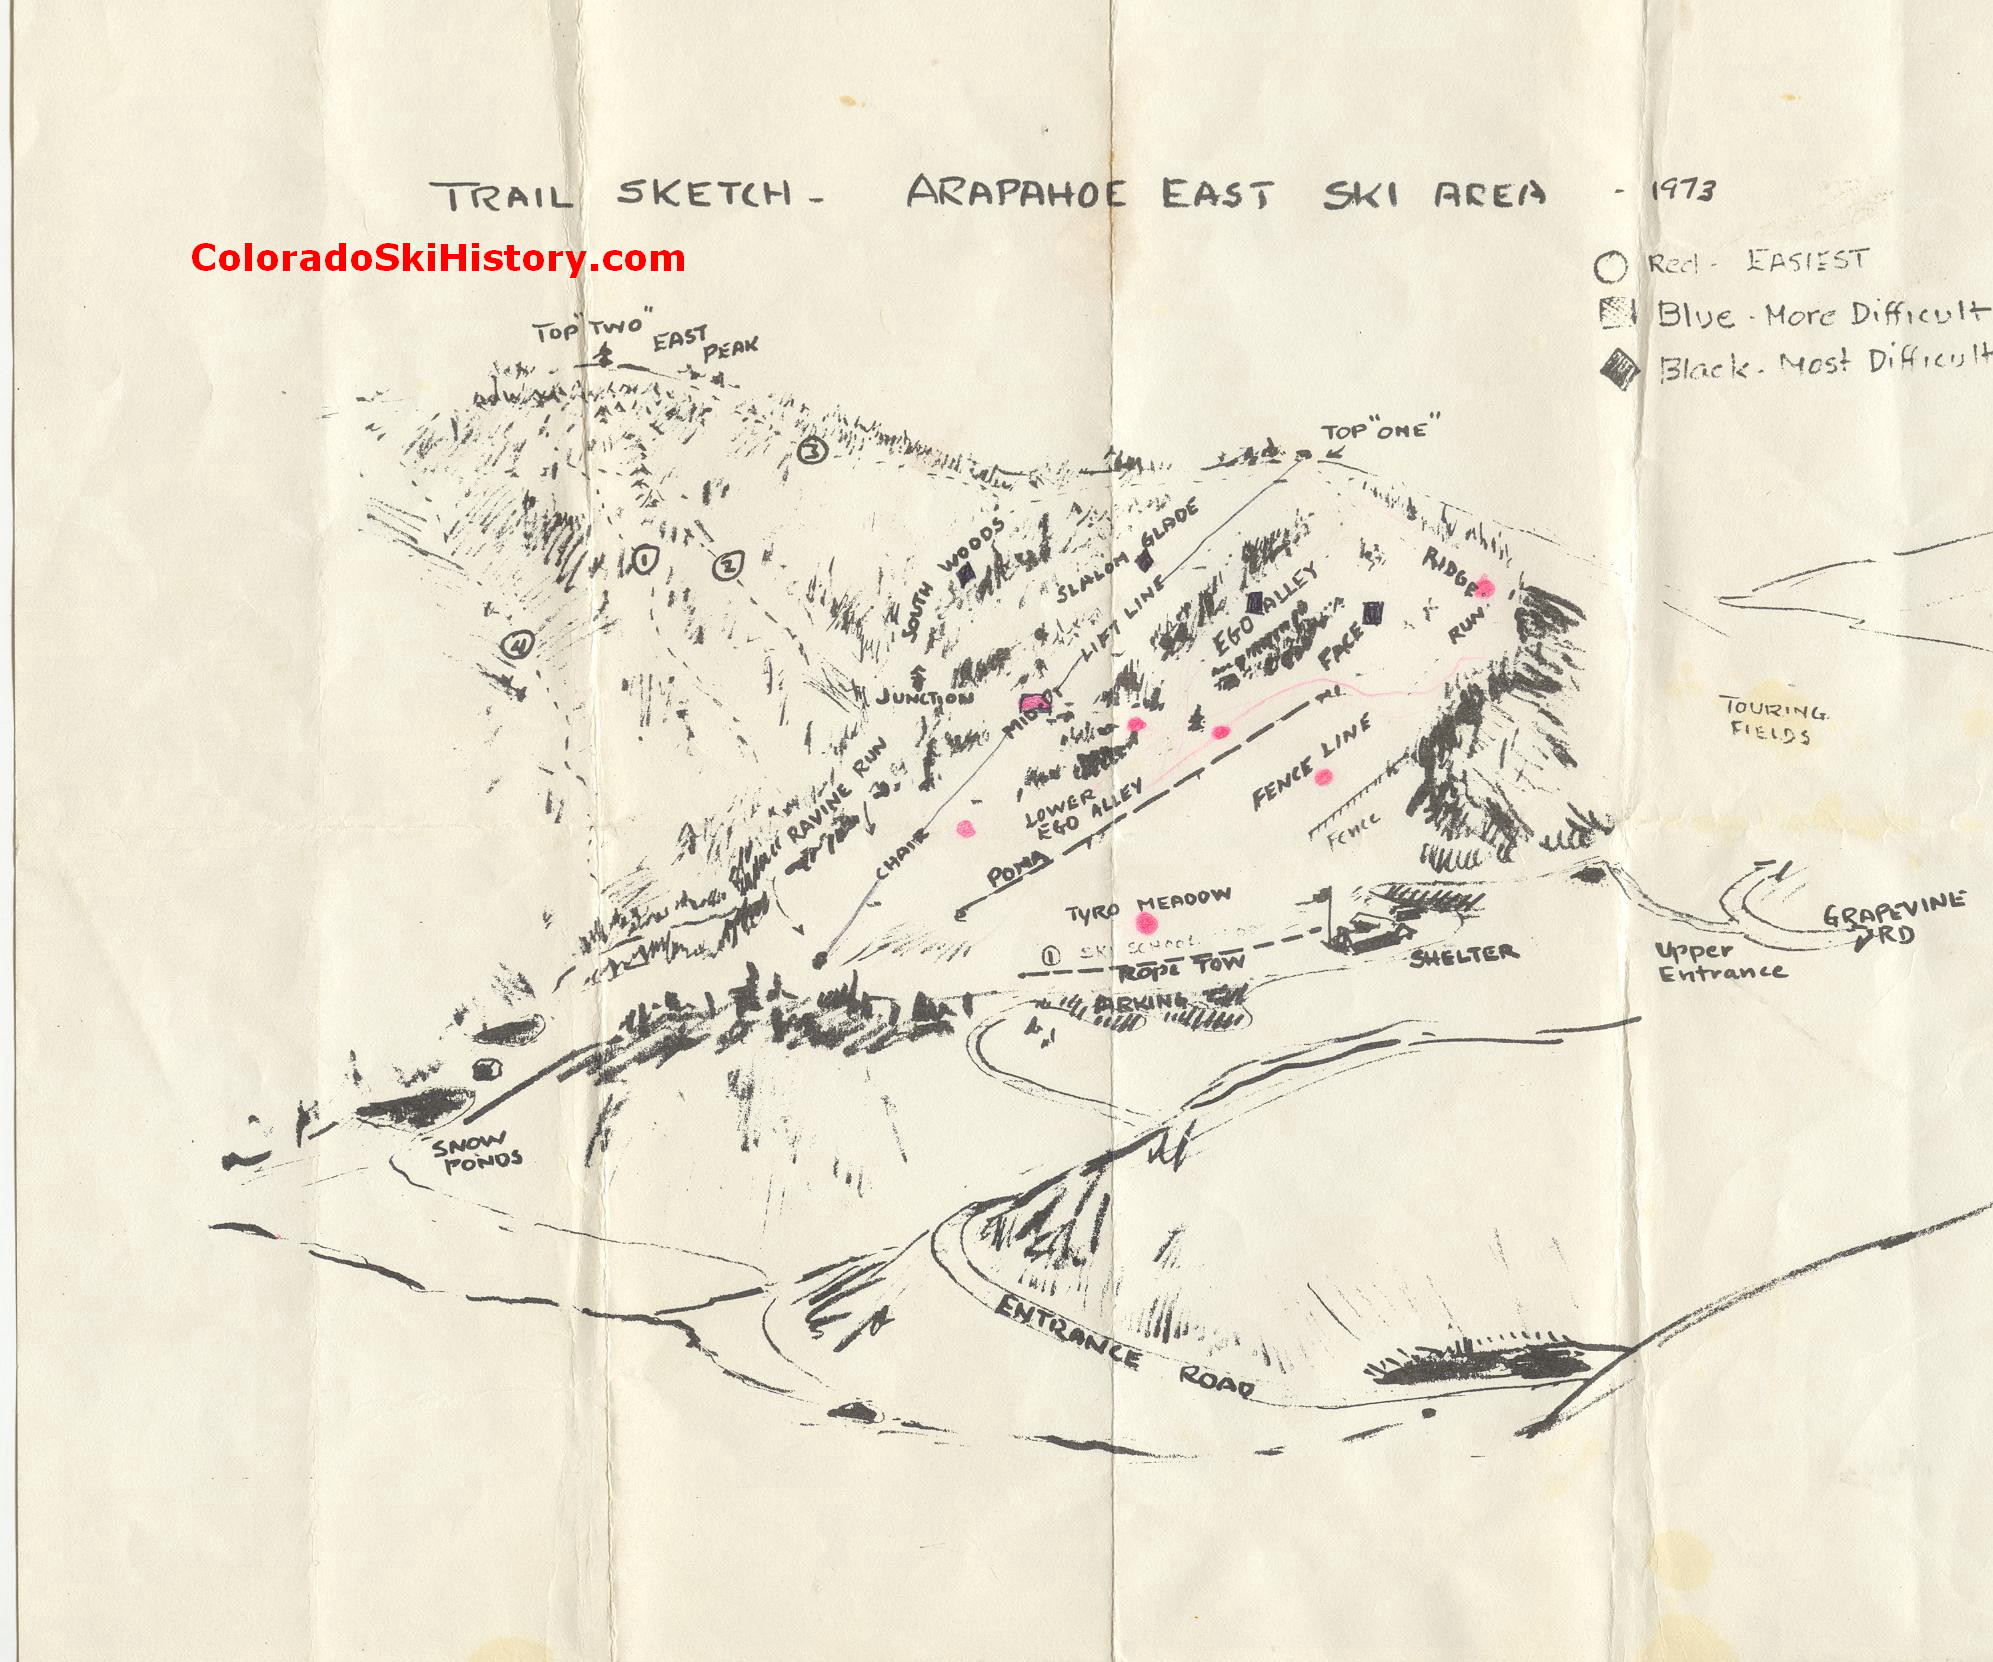 TRAIL SKETCH - ARAPAHOE EAST SKI AREA - 1973
ColoradoSkiHistory.com
Red - EASIEST
Blue - More Difficult
Black - Most Difficult
TOP "TWO"
EAST
PEAK
TOP "ONE"
3
1
2
4
SOUTH WOODS
SLALOM GLADE
LIFT LINE
EGO ALLEY
FACE
RIDGE
RUN
JUNCTION
MIDWAY
RAVINE RUN
LOWER
EGO ALLEY
CHAIR
POMA
FENCE LINE
Fence
TOURING
FIELDS
TYRO MEADOW
1 SKI SCHOOL
ROPE TOW
PARKING
SHELTER
Upper
Entrance
GRAPEVINE
RD
SNOW
PONDS
ENTRANCE ROAD